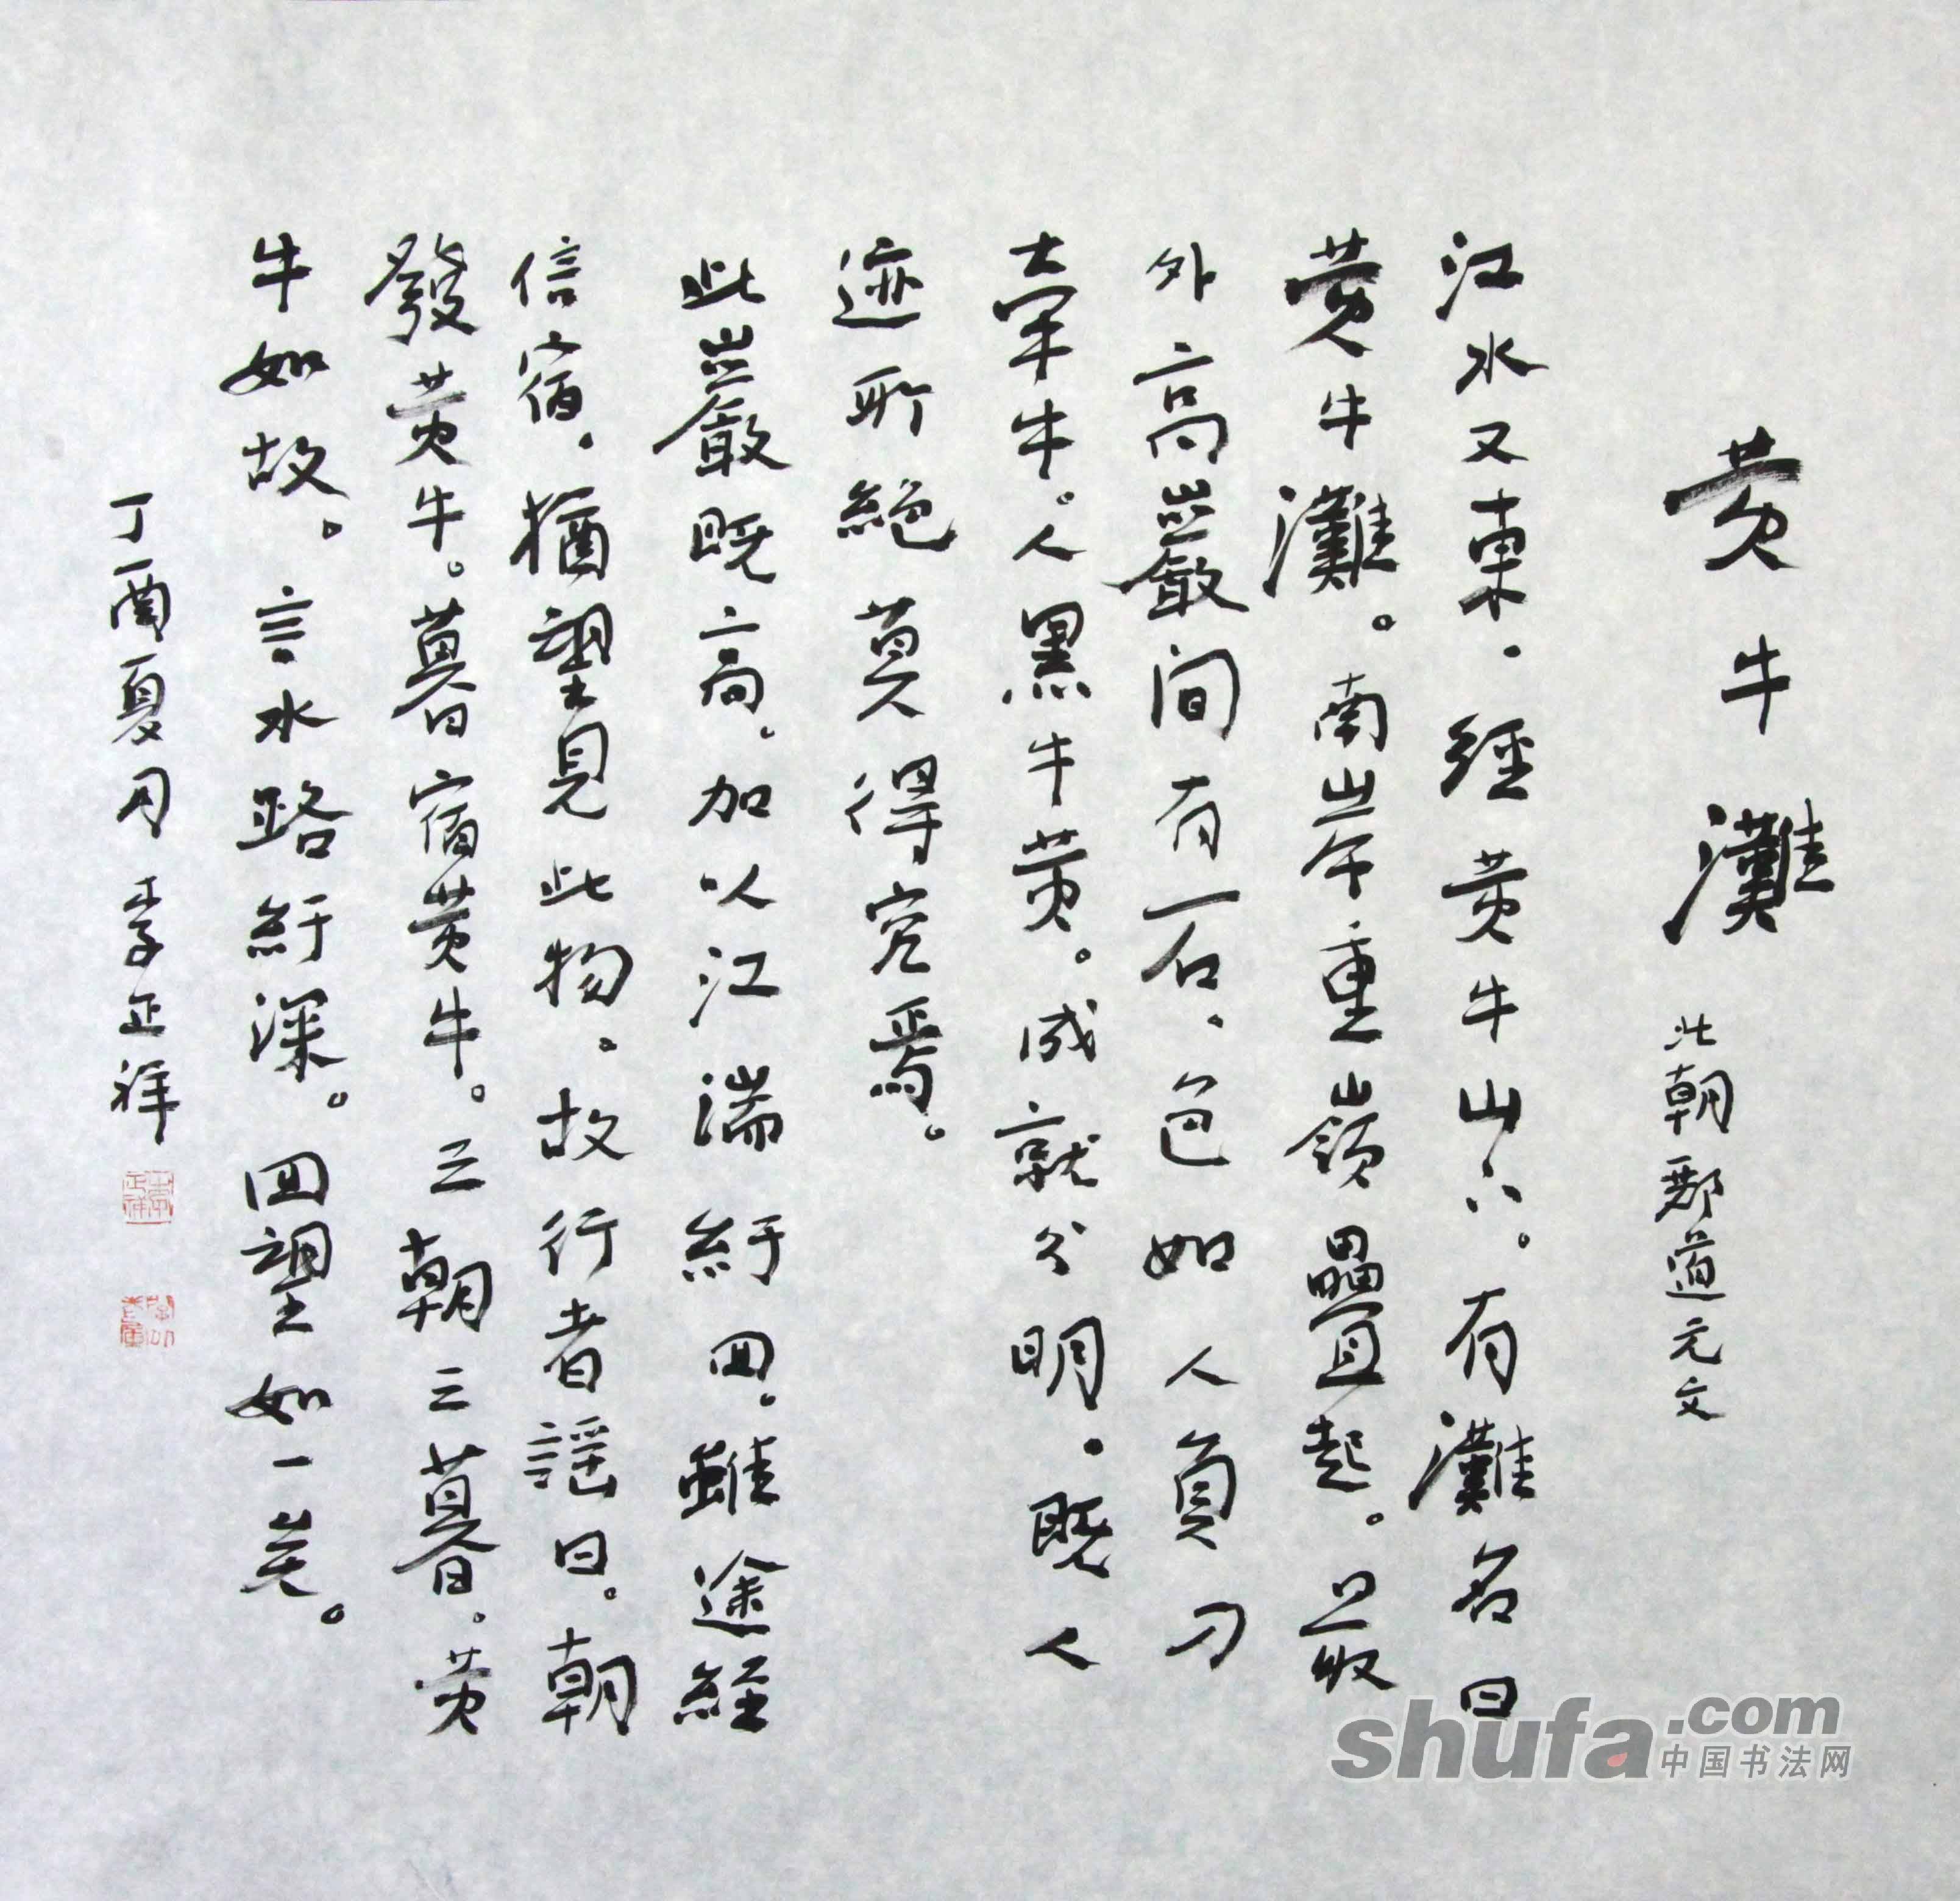 黄牛灘 北朝酈道元文
江水又東.經黄牛山下。有灘名曰
黄牛灘。南岸重嶺疊起。最
外高巖间有一石.色如人負刀
牽牛。人黑牛黄。成就分明.既人
迹所絶莫得究焉。
此巖既高.加以江湍紆回.雖途經
信宿.猶望見此物.故行者謡曰.朝
發黄牛。暮宿黄牛。三朝三暮.黄
牛如故。言水路紆深。回望如一矣。
丁酉夏月李正祥
shufa.com
中国书法网